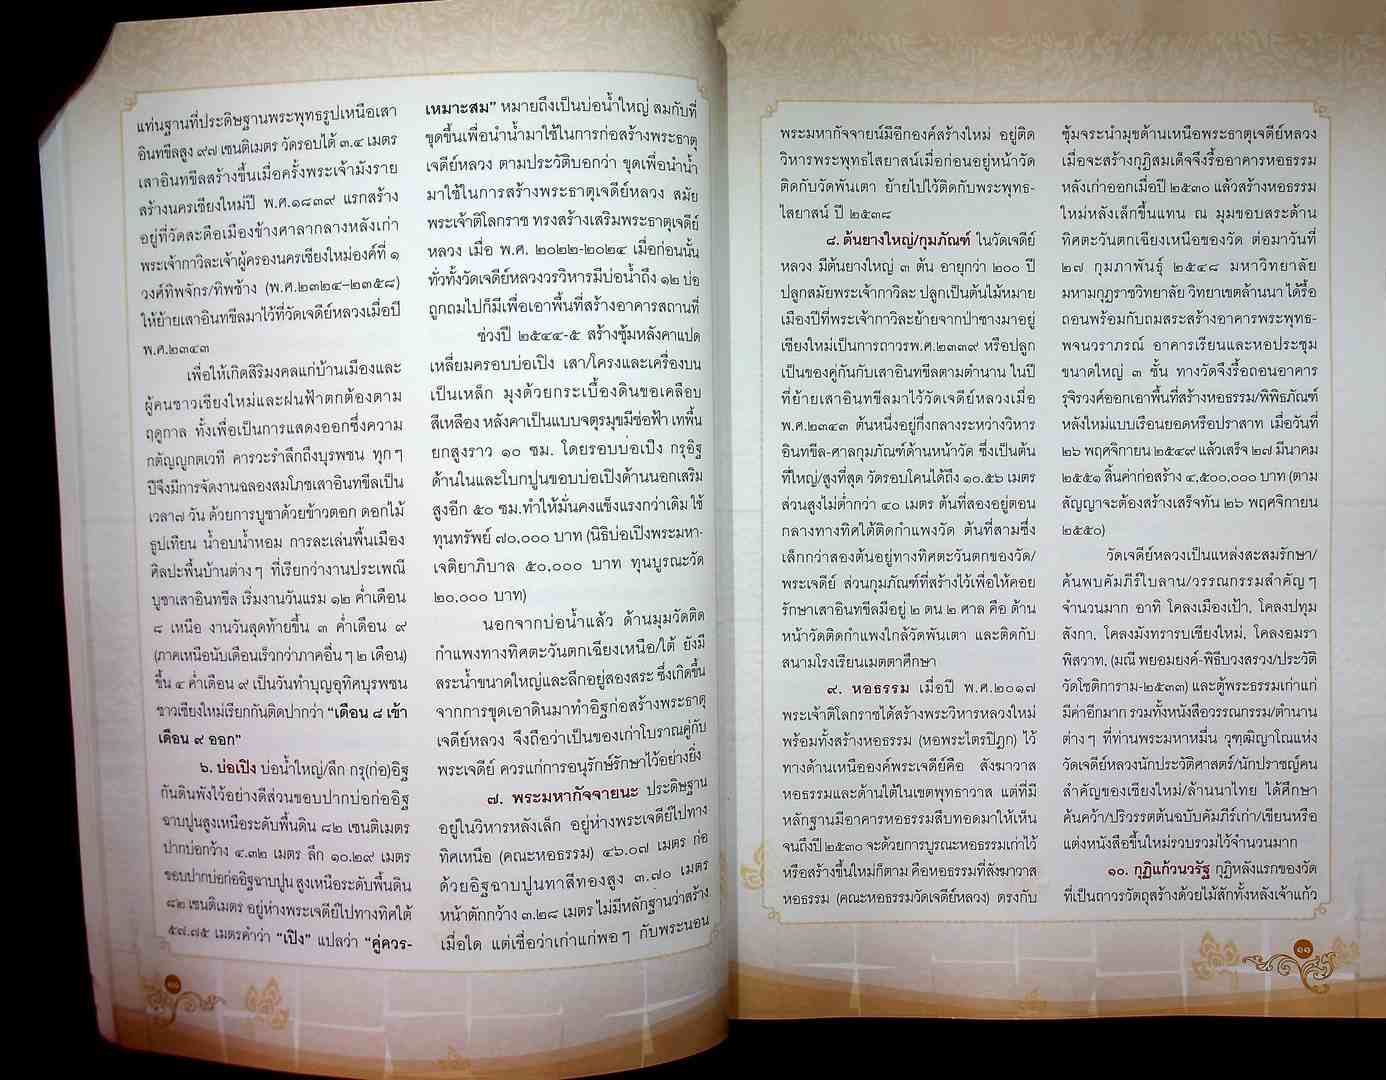 แท่นฐานที่ประดิษฐานพระพุทธรูปเหนือเสา
อินทขีลสูง ๙๗ เซนติเมตร วัดรอบได้ ๓.๔ เมตร
เสาอินทขีลสร้างขึ้นเมื่อครั้งพระเจ้ามังราย
สร้างนครเชียงใหม่ปี พ.ศ.๑๘๓๙ แรกสร้าง
อยู่ที่วัดสะดือเมืองข้างศาลากลางหลังเก่า
พระเจ้ากาวิละเจ้าผู้ครองนครเชียงใหม่องค์ที่ ๑
วงศ์ทิพจักร/ทิพช้าง (พ.ศ.๒๓๒๔–๒๓๕๘)
ให้ย้ายเสาอินทขีลมาไว้ที่วัดเจดีย์หลวงเมื่อปี
พ.ศ.๒๓๔๓
เพื่อให้เกิดสิริมงคลแก่บ้านเมืองและ
ผู้คนชาวเชียงใหม่และฝนฟ้าตกต้องตาม
ฤดูกาล ทั้งเพื่อเป็นการแสดงออกซึ่งความ
กตัญญูกตเวที คารวะรำลึกถึงบุรพชน ทุกๆ
ปีจึงมีการจัดงานฉลองสมโภชเสาอินทขีลเป็น
เวลา๗ วัน ด้วยการบูชาด้วยข้าวตอก ดอกไม้
ธูปเทียน น้ำอบน้ำหอม การละเล่นพื้นเมือง
ศิลปะพื้นบ้านต่างๆ ที่เรียกว่างานประเพณี
บูชาเสาอินทขีล เริ่มงานวันแรม ๑๒ ค่ำเดือน
๘ เหนือ งานวันสุดท้ายขึ้น ๓ ค่ำเดือน ๙
(ภาคเหนือนับเดือนเร็วกว่าภาคอื่นๆ ๒ เดือน)
ขึ้น ๔ ค่ำเดือน ๙ เป็นวันทำบุญอุทิศบุรพชน
ชาวเชียงใหม่เรียกกันติดปากว่า “เดือน ๘ เข้า
เดือน ๙ ออก”
๖. บ่อเปิง บ่อน้ำใหญ่/ลึก กรุ(ก่อ)อิฐ
กันดินพังไว้อย่างดีส่วนขอบปากบ่อก่ออิฐ
ฉาบปูนสูงเหนือระดับพื้นดิน ๘๒ เซนติเมตร
ปากบ่อกว้าง ๔.๓๒ เมตร ลึก ๑๐.๒๙ เมตร
ขอบปากบ่อก่ออิฐฉาบปูน สูงเหนือระดับพื้นดิน
๘๒ เซนติเมตร อยู่ห่างพระเจดีย์ไปทางทิศใต้
๕๗.๗๕ เมตรคำว่า “เปิง” แปลว่า “คู่ควร-
เหมาะสม” หมายถึงเป็นบ่อน้ำใหญ่ สมกับที่
ขุดขึ้นเพื่อนำน้ำมาใช้ในการก่อสร้างพระธาตุ
เจดีย์หลวง ตามประวัติบอกว่า ขุดเพื่อนำน้ำ
มาใช้ในการสร้างพระธาตุเจดีย์หลวง สมัย
พระเจ้าติโลกราช ทรงสร้างเสริมพระธาตุเจดีย์
หลวง เมื่อ พ.ศ. ๒๐๒๒-๒๐๒๔ เมื่อก่อนนั้น
ทั่วทั้งวัดเจดีย์หลวงวรวิหารมีบ่อน้ำถึง ๑๒ บ่อ
ถูกถมไปก็มีเพื่อเอาพื้นที่สร้างอาคารสถานที่
ช่วงปี ๒๕๔๔-๕ สร้างซุ้มหลังคาแปด
เหลี่ยมครอบบ่อเปิง เสา/โครงและเครื่องบน
เป็นเหล็ก มุงด้วยกระเบื้องดินขอเคลือบ
สีเหลือง หลังคาเป็นแบบจตุรมุขมีช่อฟ้า เทพื้น
ยกสูงราว ๑๐ ซม. โดยรอบบ่อเปิง กรุอิฐ
ด้านในและโบกปูนขอบบ่อเปิงด้านนอกเสริม
สูงอีก ๕๐ ซม.ทำให้มั่นคงแข็งแรงกว่าเดิม ใช้
ทุนทรัพย์ ๗๐,๐๐๐ บาท (นิธิบ่อเปิงพระมหา-
เจติยาภิบาล ๕๐,๐๐๐ บาท ทุนบูรณะวัด
๒๐,๐๐๐ บาท)
นอกจากบ่อน้ำแล้ว ด้านมุมวัดติด
กำแพงทางทิศตะวันตกเฉียงเหนือ/ใต้ ยังมี
สระน้ำขนาดใหญ่และลึกอยู่สองสระ ซึ่งเกิดขึ้น
จากการขุดเอาดินมาทำอิฐก่อสร้างพระธาตุ
เจดีย์หลวง จึงถือว่าเป็นของเก่าโบราณคู่กับ
พระเจดีย์ ควรแก่การอนุรักษ์รักษาไว้อย่างยิ่ง
๗. พระมหากัจจายนะ ประดิษฐาน
อยู่ในวิหารหลังเล็ก อยู่ห่างพระเจดีย์ไปทาง
ทิศเหนือ (คณะหอธรรม) ๔๖.๐๗ เมตร ก่อ
ด้วยอิฐฉาบปูนทาสีทองสูง ๓.๗๐ เมตร
หน้าตักกว้าง ๓.๒๘ เมตร ไม่มีหลักฐานว่าสร้าง
เมื่อใด แต่เชื่อว่าเก่าแก่พอๆ กับพระนอน
พระมหากัจจายน์มีอีกองค์สร้างใหม่ อยู่ติด
วิหารพระพุทธไสยาสน์เมื่อก่อนอยู่หน้าวัด
ติดกับวัดพันเตา ย้ายไปไว้ติดกับพระพุทธ-
ไสยาสน์ ปี ๒๕๓๘
๘. ต้นยางใหญ่/กุมภัณฑ์ ในวัดเจดีย์
หลวง มีต้นยางใหญ่ ๓ ต้น อายุกว่า ๒๐๐ ปี
ปลูกสมัยพระเจ้ากาวิละ ปลูกเป็นต้นไม้หมาย
เมืองปีที่พระเจ้ากาวิละย้ายจากป่าซางมาอยู่
เชียงใหม่เป็นการถาวรพ.ศ.๒๓๓๙ หรือปลูก
เป็นของคู่กันกับเสาอินทขีลตามตำนาน ในปี
ที่ย้ายเสาอินทขีลมาไว้วัดเจดีย์หลวงเมื่อ
พ.ศ.๒๓๔๓ ต้นหนึ่งอยู่กึ่งกลางระหว่างวิหาร
อินทขีล-ศาลกุมภัณฑ์ด้านหน้าวัด ซึ่งเป็นต้น
ที่ใหญ่/สูงที่สุด วัดรอบโคนได้ถึง ๑๐.๕๖ เมตร
ส่วนสูงไม่ต่ำกว่า ๔๐ เมตร ต้นที่สองอยู่ตอน
กลางทางทิศใต้ติดกำแพงวัด ต้นที่สามซึ่ง
เล็กกว่าสองต้นอยู่ทางทิศตะวันตกของวัด/
พระเจดีย์ ส่วนกุมภัณฑ์ที่สร้างไว้เพื่อให้คอย
รักษาเสาอินทขีลมีอยู่ ๒ ตน ๒ ศาล คือ ด้าน
หน้าวัดติดกำแพงใกล้วัดพันเตา และติดกับ
สนามโรงเรียนเมตตาศึกษา
๙. หอธรรม เมื่อปี พ.ศ.๒๐๑๗
พระเจ้าติโลกราชได้สร้างพระวิหารหลวงใหม่
พร้อมทั้งสร้างหอธรรม (หอพระไตรปิฎก) ไว้
ทางด้านเหนือองค์พระเจดีย์คือ สังฆาวาส
หอธรรมและด้านใต้ในเขตพุทธาวาส แต่ที่มี
หลักฐานมีอาคารหอธรรมสืบทอดมาให้เห็น
จนถึงปี ๒๕๓๐ จะด้วยการบูรณะหอธรรมเก่าไว้
หรือสร้างขึ้นใหม่ก็ตาม คือหอธรรมที่สังฆาวาส
หอธรรม (คณะหอธรรมวัดเจดีย์หลวง) ตรงกับ
ซุ้มจระนำมุขด้านเหนือพระธาตุเจดีย์หลวง
เมื่อจะสร้างกุฏิสมเด็จจึงรื้ออาคารหอธรรม
หลังเก่าออกเมื่อปี ๒๕๓๐ แล้วสร้างหอธรรม
ใหม่หลังเล็กขึ้นแทน ณ มุมขอบสระด้าน
ทิศตะวันตกเฉียงเหนือของวัด ต่อมาวันที่
๒๗ กุมภาพันธุ์ ๒๕๔๘ มหาวิทยาลัย
มหามกุฏราชวิทยาลัย วิทยาเขตล้านนา ได้รื้อ
ถอนพร้อมกับถมสระสร้างอาคารพระพุทธ-
พจนวราภรณ์ อาคารเรียนและหอประชุม
ขนาดใหญ่ ๓ ชั้น ทางวัดจึงรื้อถอนอาคาร
รุจิรวงศ์ออกเอาพื้นที่สร้างหอธรรม/พิพิธภัณฑ์
หลังใหม่แบบเรือนยอดหรือปราสาท เมื่อวันที่
๒๖ พฤศจิกายน ๒๕๔๙ แล้วเสร็จ ๒๗ มีนาคม
๒๕๕๑ สิ้นค่าก่อสร้าง ๔,๕๐๐,๐๐๐ บาท (ตาม
สัญญาจะต้องสร้างเสร็จทัน ๒๖ พฤศจิกายน
๒๕๕๐)
วัดเจดีย์หลวงเป็นแหล่งสะสมรักษา/
ค้นพบคัมภีร์ใบลาน/วรรณกรรมสำคัญๆ
จำนวนมาก อาทิ โคลงเมืองเป้า, โคลงปทุม
สังกา, โคลงมังทรารบเชียงใหม่, โคลงอมรา
พิสวาท, (มณี พยอมยงค์-พิธีบวงสรวง/ประวัติ
วัดโชติการาม-๒๕๓๓) และตู้พระธรรมเก่าแก่
มีค่าอีกมาก รวมทั้งหนังสือวรรณกรรม/ตำนาน
ต่างๆ ที่ท่านพระมหาหมื่น วุฑฺฒิญาโณแห่ง
วัดเจดีย์หลวงนักประวัติศาสตร์/นักปราชญ์คน
สำคัญของเชียงใหม่/ล้านนาไทย ได้ศึกษา
ค้นคว้า/ปริวรรตต้นฉบับคัมภีร์เก่า/เขียนหรือ
แต่งหนังสือขึ้นใหม่รวบรวมไว้จำนวนมาก
๑๐. กุฏิแก้วนวรัฐ กุฏิหลังแรกของวัด
ที่เป็นถาวรวัตถุสร้างด้วยไม้สักทั้งหลังเจ้าแก้ว
๑๐
๑๑